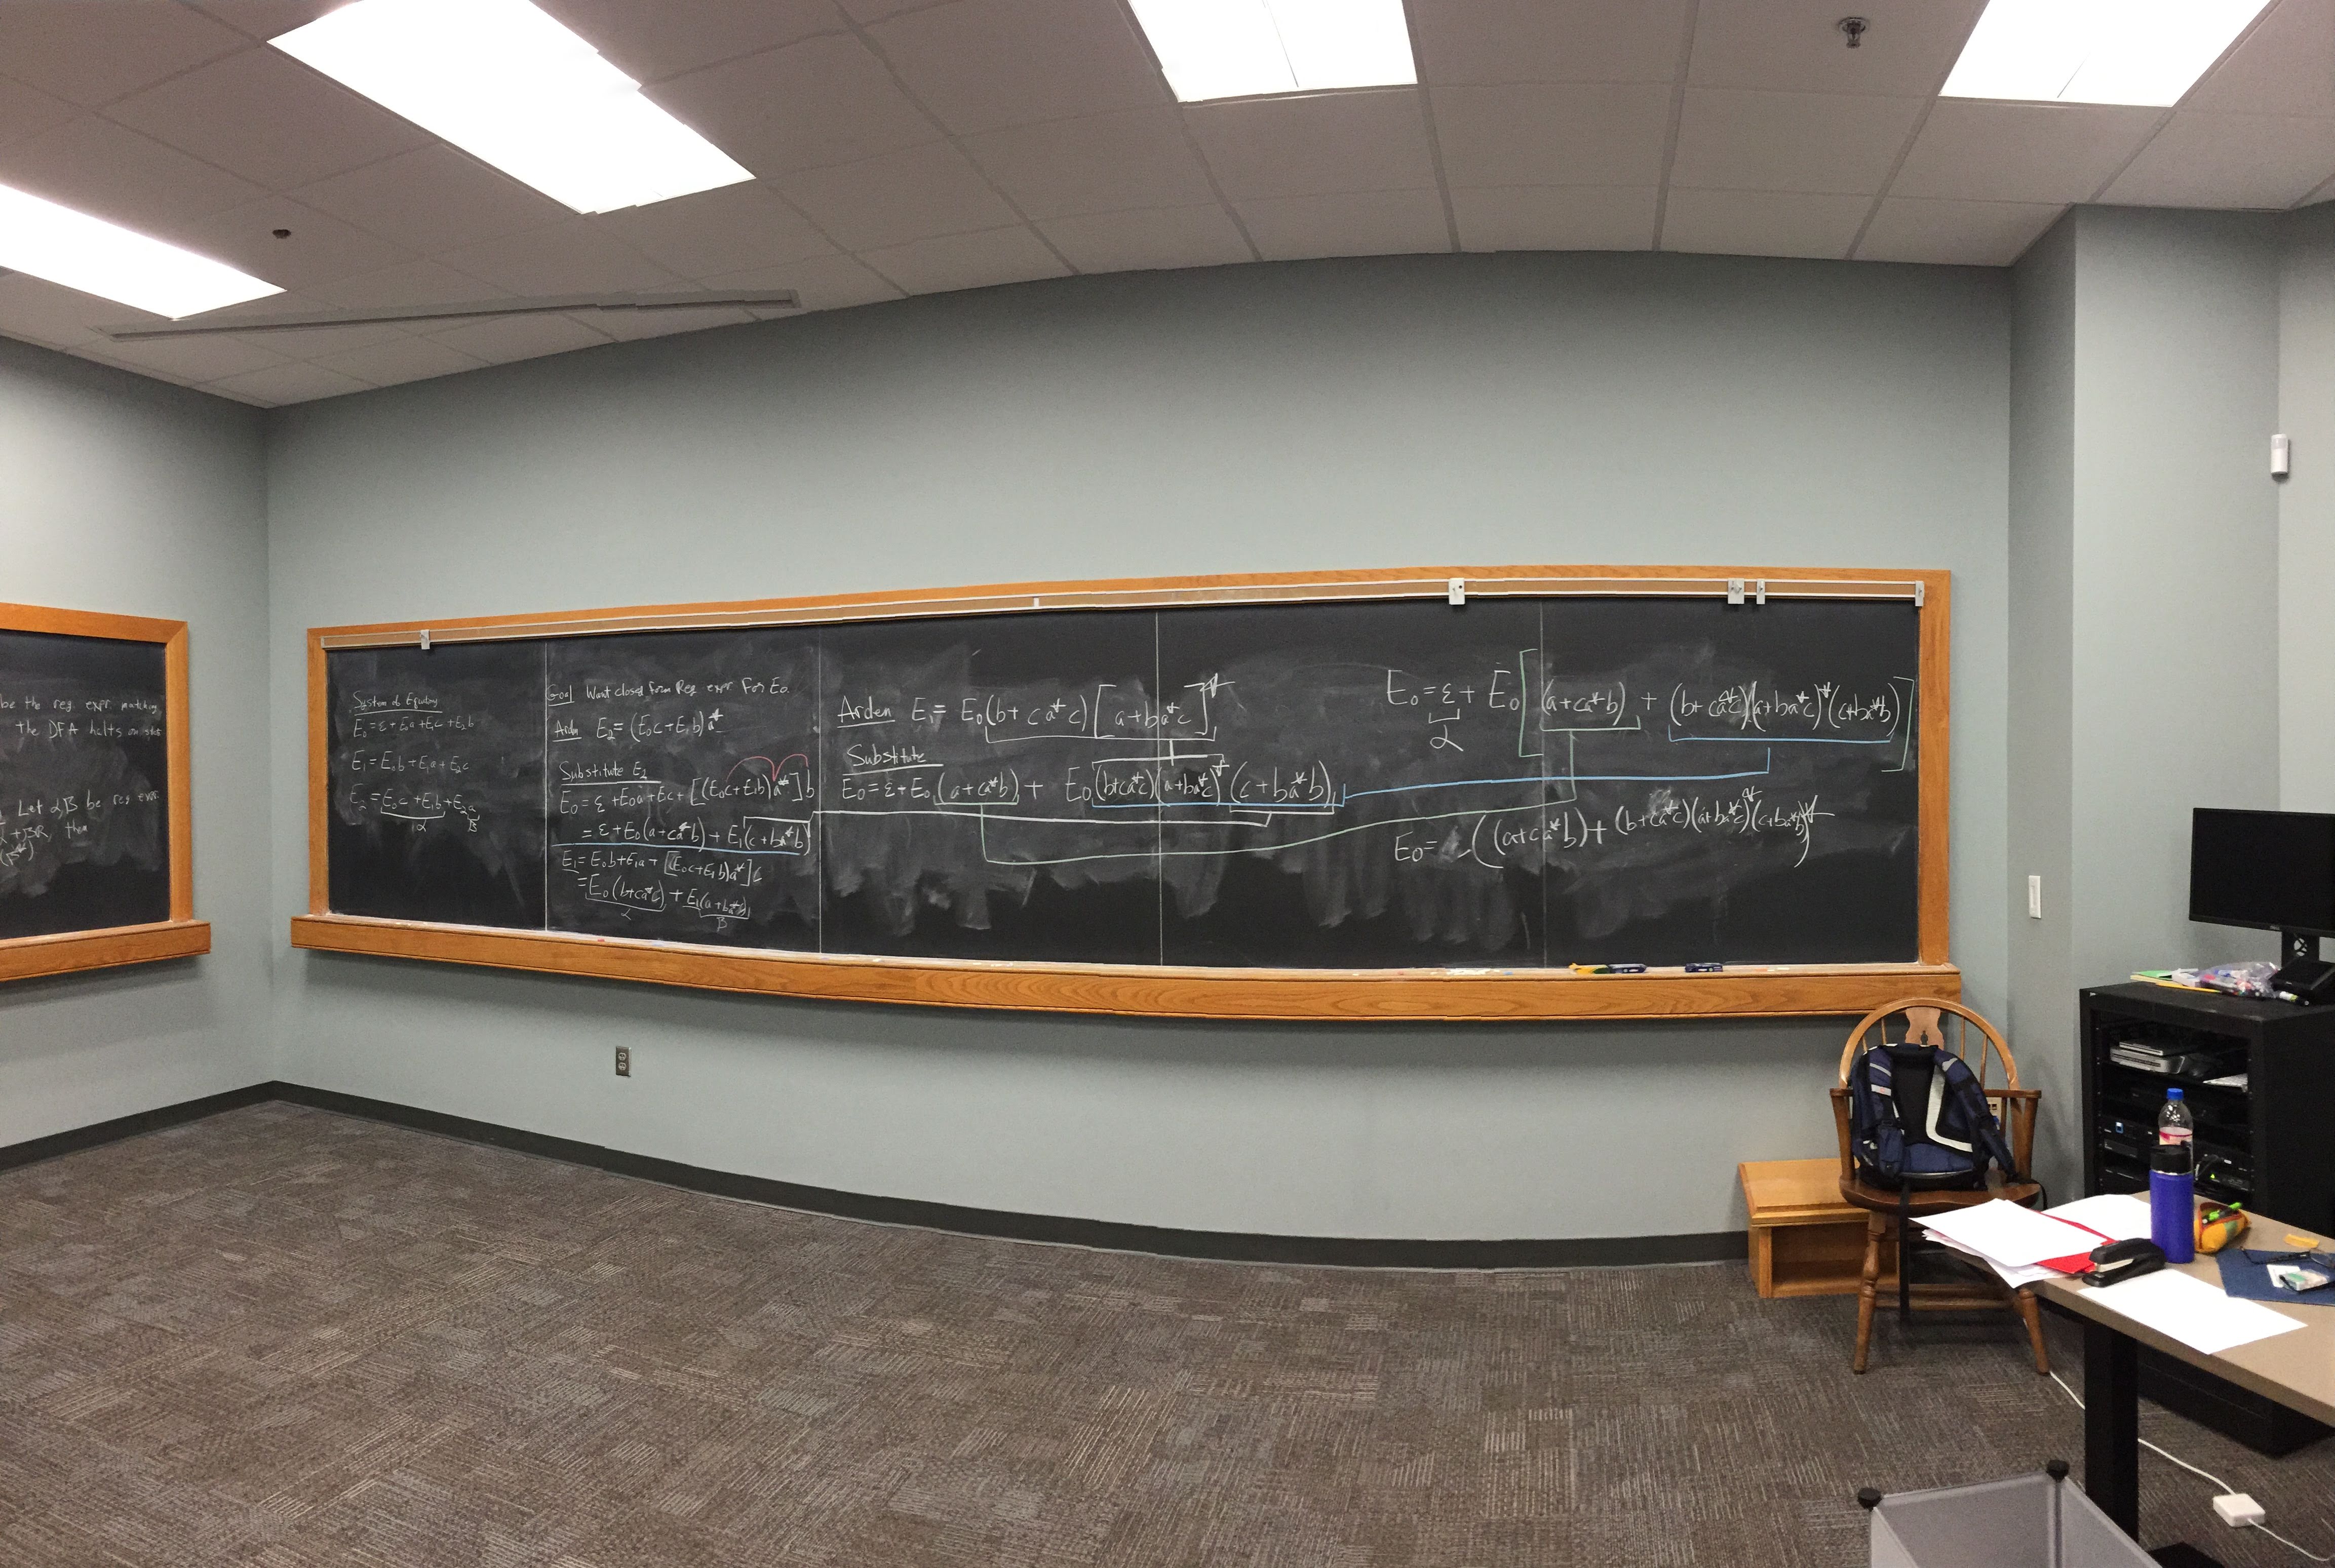 be the reg. expr. matching
the DFA halts on state
Let α, β be reg expr.
α + βR, then
System of Equations
E₀ = ε + E₀a + E₁c + E₂b
E₁ = E₀b + E₁a + E₂c
E₂ = E₀c + E₁b + E₂a
α β
Goal Want closed form Reg expr For E₀.
Arden E₂ = (E₀c + E₁b)a*
Substitute E₂
E₀ = ε + E₀a + E₁c + [(E₀c + E₁b)a*]b
= ε + E₀(a + ca*b) + E₁(c + ba*b)
E₁ = E₀b + E₁a + [(E₀c + E₁b)a*]c
= E₀(b + ca*c) + E₁(a + ba*c)
α β
Arden E₁ = E₀(b + ca*c)[a + ba*c]*
Substitute
E₀ = ε + E₀(a + ca*b) + E₀(b + ca*c)(a + ba*c)*(c + ba*b)
E₀ = ε + E₀[(a + ca*b) + (b + ca*c)(a + ba*c)*(c + ba*b)]
α
E₀ = ((a + ca*b) + (b + ca*c)(a + ba*c)*(c + ba*b))*